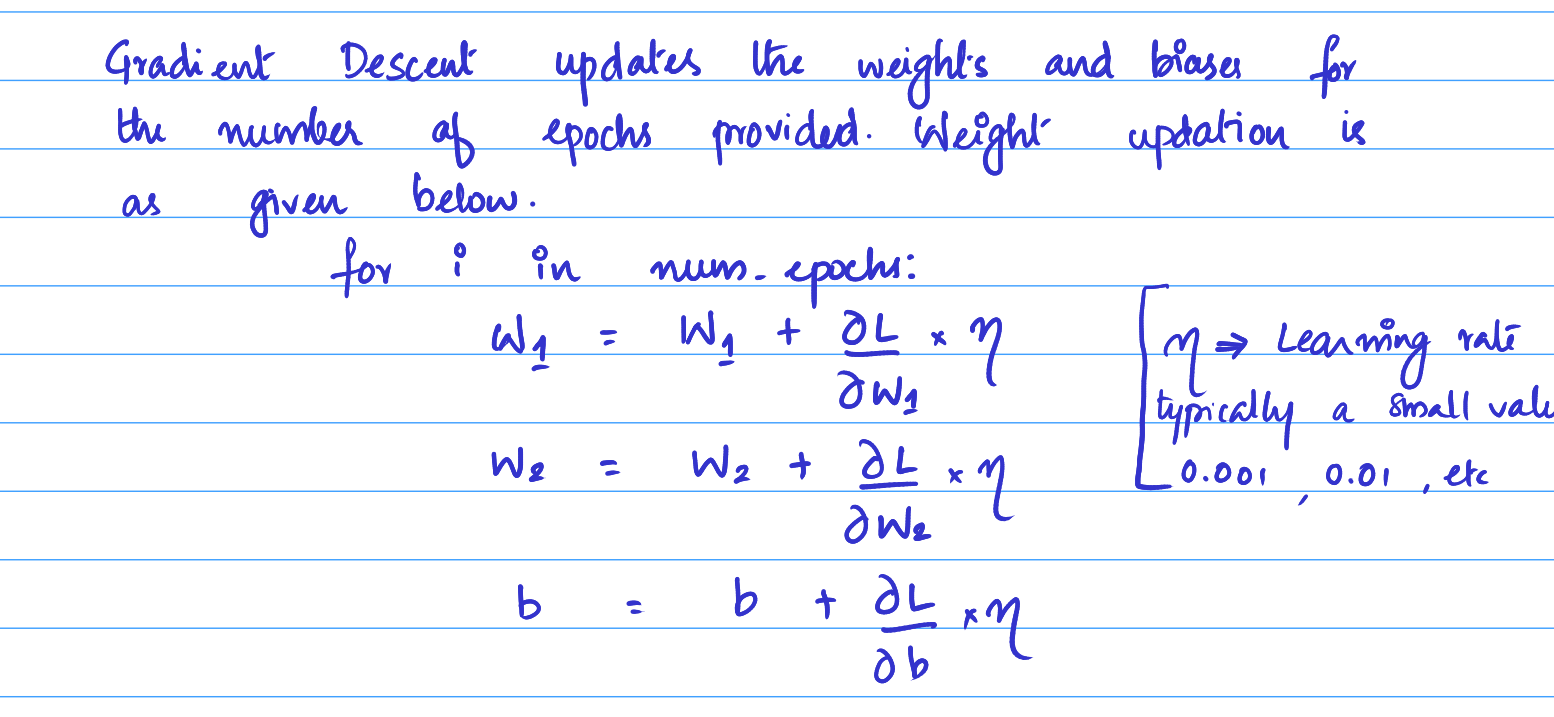 Gradient Descent updates the weights and biases for
the number of epochs provided. Weight updation is
as given below.
for i in num_epochs:
w₁ = w₁ + ∂L/∂w₁ × η
w₂ = w₂ + ∂L/∂w₂ × η
b = b + ∂L/∂b × η
[η ⇒ Learning rate
typically a small valu
0.001, 0.01, etc